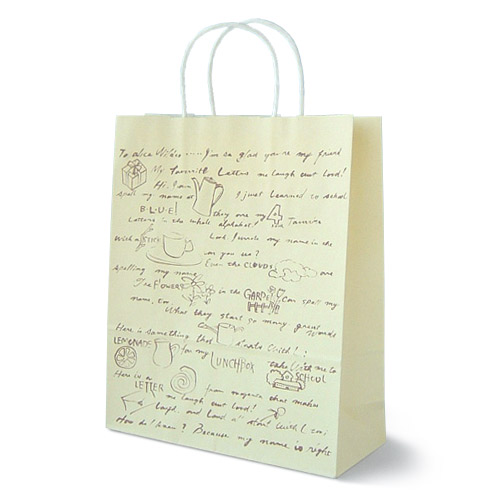 To alice Wilkes.....I'm so glad you're my friend
My favorite Letters me laugh out loud!
Hi! I can I just learned to school
spell my name at
BLUE! they are my 4 favorite
Letters in the whole alphabet!
with a STICK Look I wrote my name in the
can you see?
Even the CLOUDS are
spelling my name
The FLOWERS in the GARDEN Can spell my
name, too. What they start so many great words
Here is something that starts with!:
LEMONADE for my LUNCHBOX take with me to
SCHOOL
Here is a LETTER from someone that makes
me laugh out loud!
laugh, and Loud all start with L too;
How do I know? Because my name is right